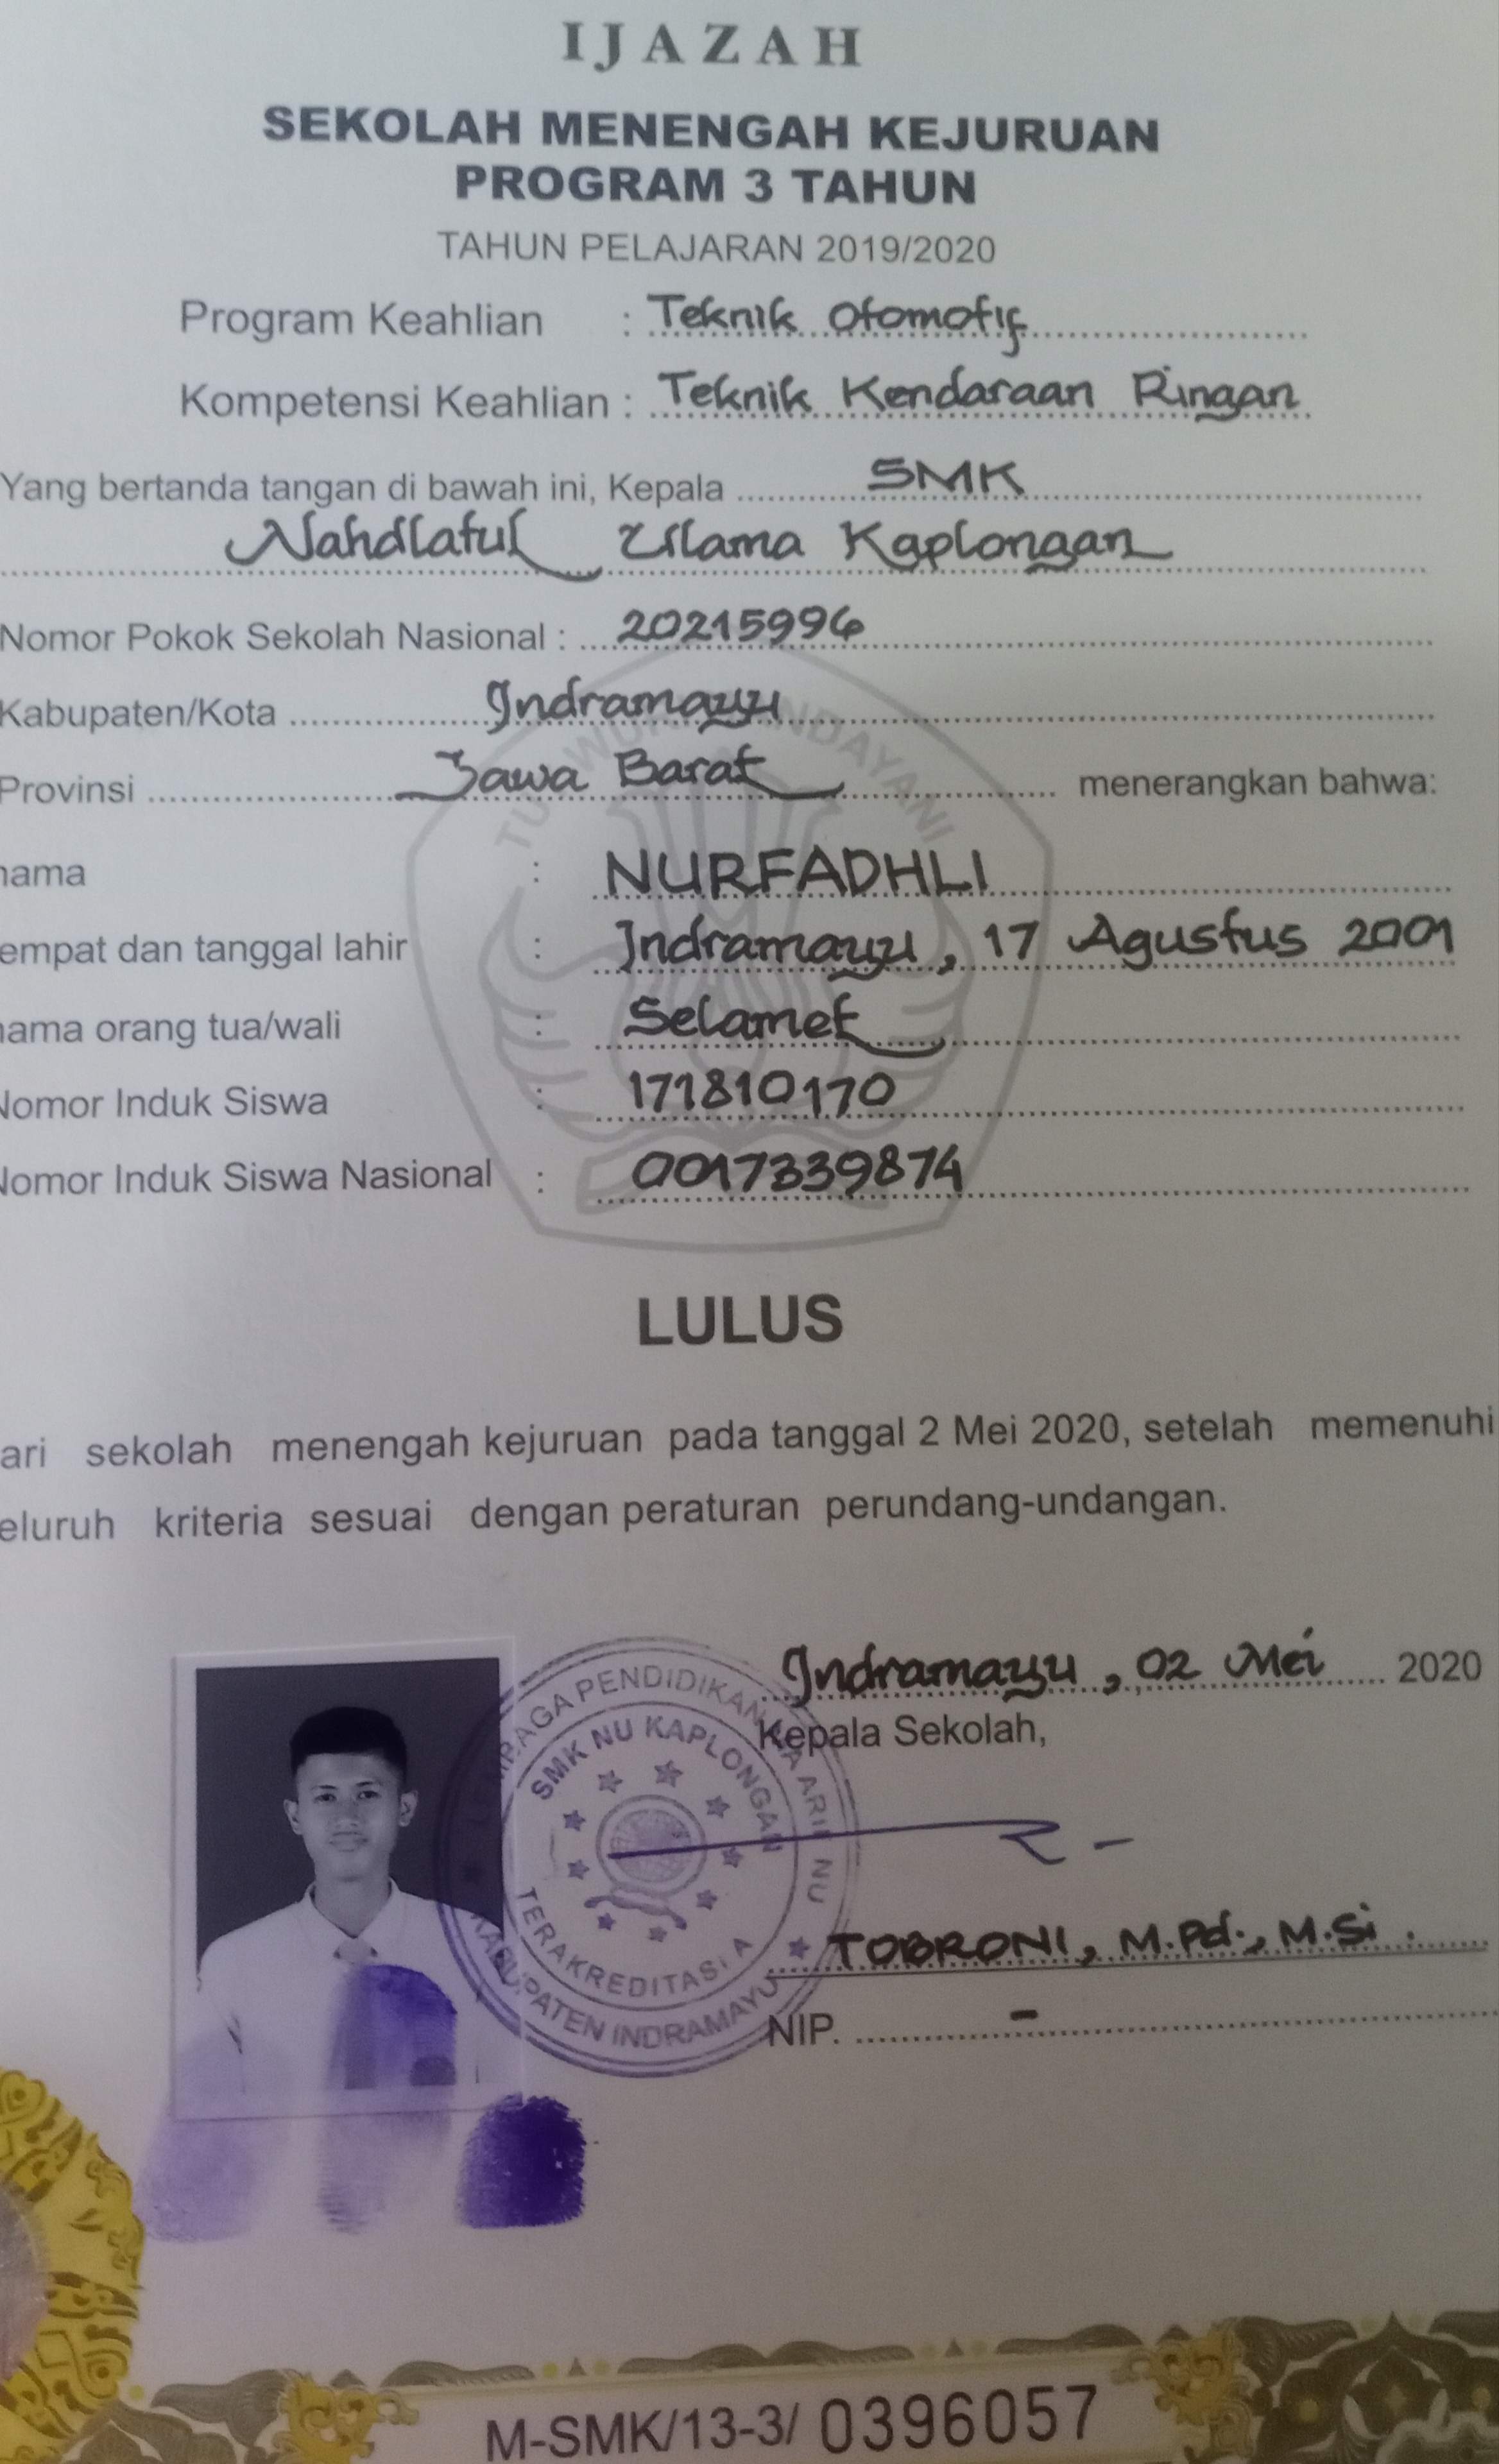 IJAZAH
SEKOLAH MENENGAH KEJURUAN
PROGRAM 3 TAHUN
TAHUN PELAJARAN 2019/2020
Program Keahlian : Teknik Otomotif
Kompetensi Keahlian : Teknik Kendaraan Ringan
Yang bertanda tangan di bawah ini, Kepala SMK
Nahdlatul Ulama Kaplongan
Nomor Pokok Sekolah Nasional : 20215996
Kabupaten/Kota Indramayu
Provinsi Jawa Barat menerangkan bahwa:
nama : NURFADHLI
empat dan tanggal lahir : Indramayu, 17 Agustus 2001
nama orang tua/wali : Selamet
Nomor Induk Siswa : 171810170
Nomor Induk Siswa Nasional : 0017339874
TUT WURI HANDAYANI
LULUS
ari sekolah menengah kejuruan pada tanggal 2 Mei 2020, setelah memenuhi
eluruh kriteria sesuai dengan peraturan perundang-undangan.
Indramayu, 02 Mei 2020
Kepala Sekolah,
LEMBAGA PENDIDIKAN MA'ARIF NU
SMK NU KAPLONGAN
TERAKREDITASI A
KABUPATEN INDRAMAYU
TOBRONI, M.Pd., M.Si.
NIP. -
M-SMK/13-3/ 0396057